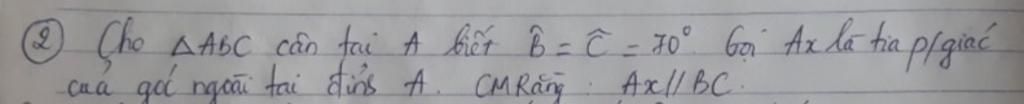 ② Cho △ABC cân tại A biết B̂ = Ĉ = 70°. Gọi Ax là tia p/giác
của góc ngoài tại đỉnh A. CMRằng: Ax//BC.